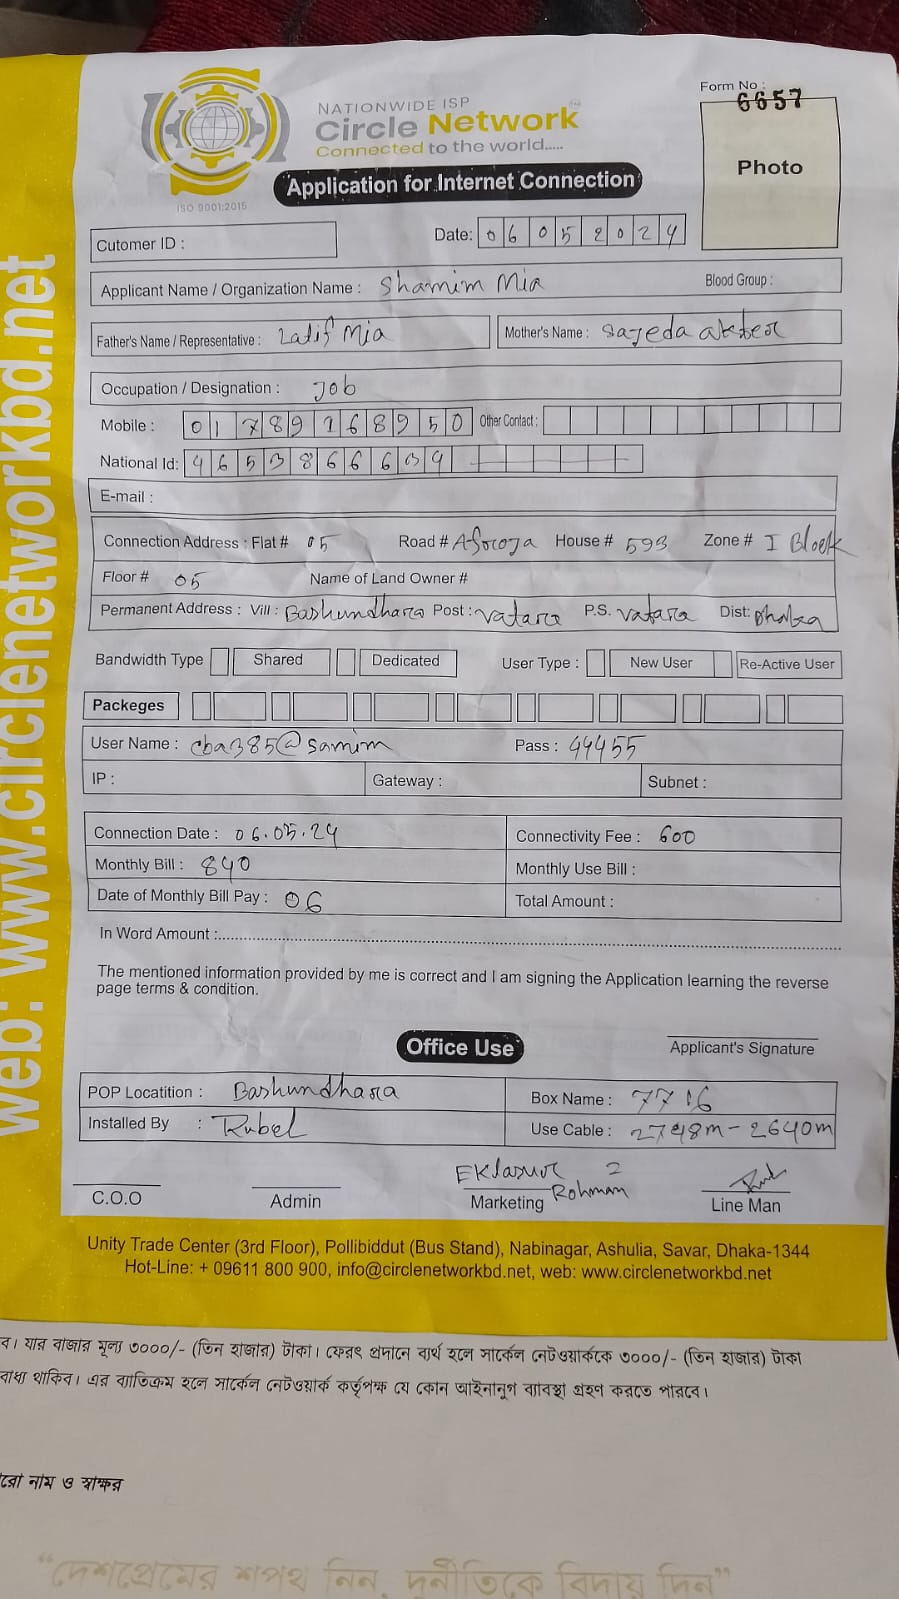 Form No :
6657
Photo
NATIONWIDE ISP
Circle Network
Connected to the world.....
ISO 9001:2015
Application for Internet Connection
Cutomer ID :
Date: 06052024
Applicant Name / Organization Name : Shamim Mia Blood Group :
Father's Name / Representative : Latif Mia Mother's Name : Sajeda akter
Occupation / Designation : Job
Mobile : 01789168950 Other Contact :
National Id: 4653866639
E-mail :
Connection Address : Flat # 05 Road # Afroja House # 593 Zone # I Block
Floor # 05 Name of Land Owner #
Permanent Address : Vill : Bashundhara Post : vatara P.S. vatara Dist: Dhaka
Bandwidth Type Shared Dedicated User Type : New User Re-Active User
Packeges
User Name : cba385@samim Pass : 44455
IP : Gateway : Subnet :
Connection Date : 06.05.24 Connectivity Fee : 600
Monthly Bill : 840 Monthly Use Bill :
Date of Monthly Bill Pay : 06 Total Amount :
In Word Amount :
The mentioned information provided by me is correct and I am signing the Application learning the reverse
page terms & condition.
Office Use
Applicant's Signature
POP Locatition : Bashundhara Box Name : 7716
Installed By : Rubel Use Cable : 2748m - 2640m
Eklasur 2
Rohman
C.O.O Admin Marketing Line Man
Unity Trade Center (3rd Floor), Pollibiddut (Bus Stand), Nabinagar, Ashulia, Savar, Dhaka-1344
Hot-Line: + 09611 800 900, info@circlenetworkbd.net, web: www.circlenetworkbd.net
web: www.circlenetworkbd.net
ব। যার বাজার মূল্য ৩০০০/- (তিন হাজার) টাকা। ফেরৎ প্রদানে ব্যর্থ হলে সার্কেল নেটওয়ার্ককে ৩০০০/- (তিন হাজার) টাকা
বাধ্য থাকিব। এর ব্যতিক্রম হলে সার্কেল নেটওয়ার্ক কর্তৃপক্ষ যে কোন আইনানুগ ব্যাবস্থা গ্রহণ করতে পারবে।
রো নাম ও স্বাক্ষর
“দেশপ্রেমের শপথ নিন, দুর্নীতিকে বিদায় দিন”